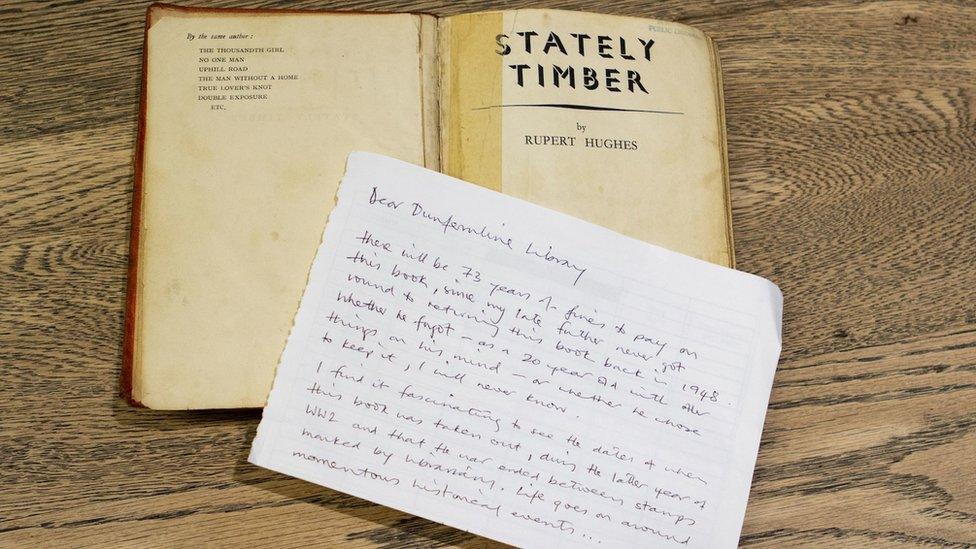 By the same author:
THE THOUSANDTH GIRL
NO ONE MAN
UPHILL ROAD
THE MAN WITHOUT A HOME
TRUE LOVER'S KNOT
DOUBLE EXPOSURE
ETC.
PUBLIC
STATELY
TIMBER
by
RUPERT HUGHES
Dear Dunfermline Library
there will be 73 years of fines to pay on
this book, since my late father never got
round to returning this book back in 1948.
Whether he forgot – as a 20 year old with other
things on his mind – or whether he chose
to keep it, I will never know.
I find it fascinating to see the dates of when
this book was taken out, during the latter years of
WW2 and that the war ended between stamps
marked by librarians. Life goes on around
momentous historical events...